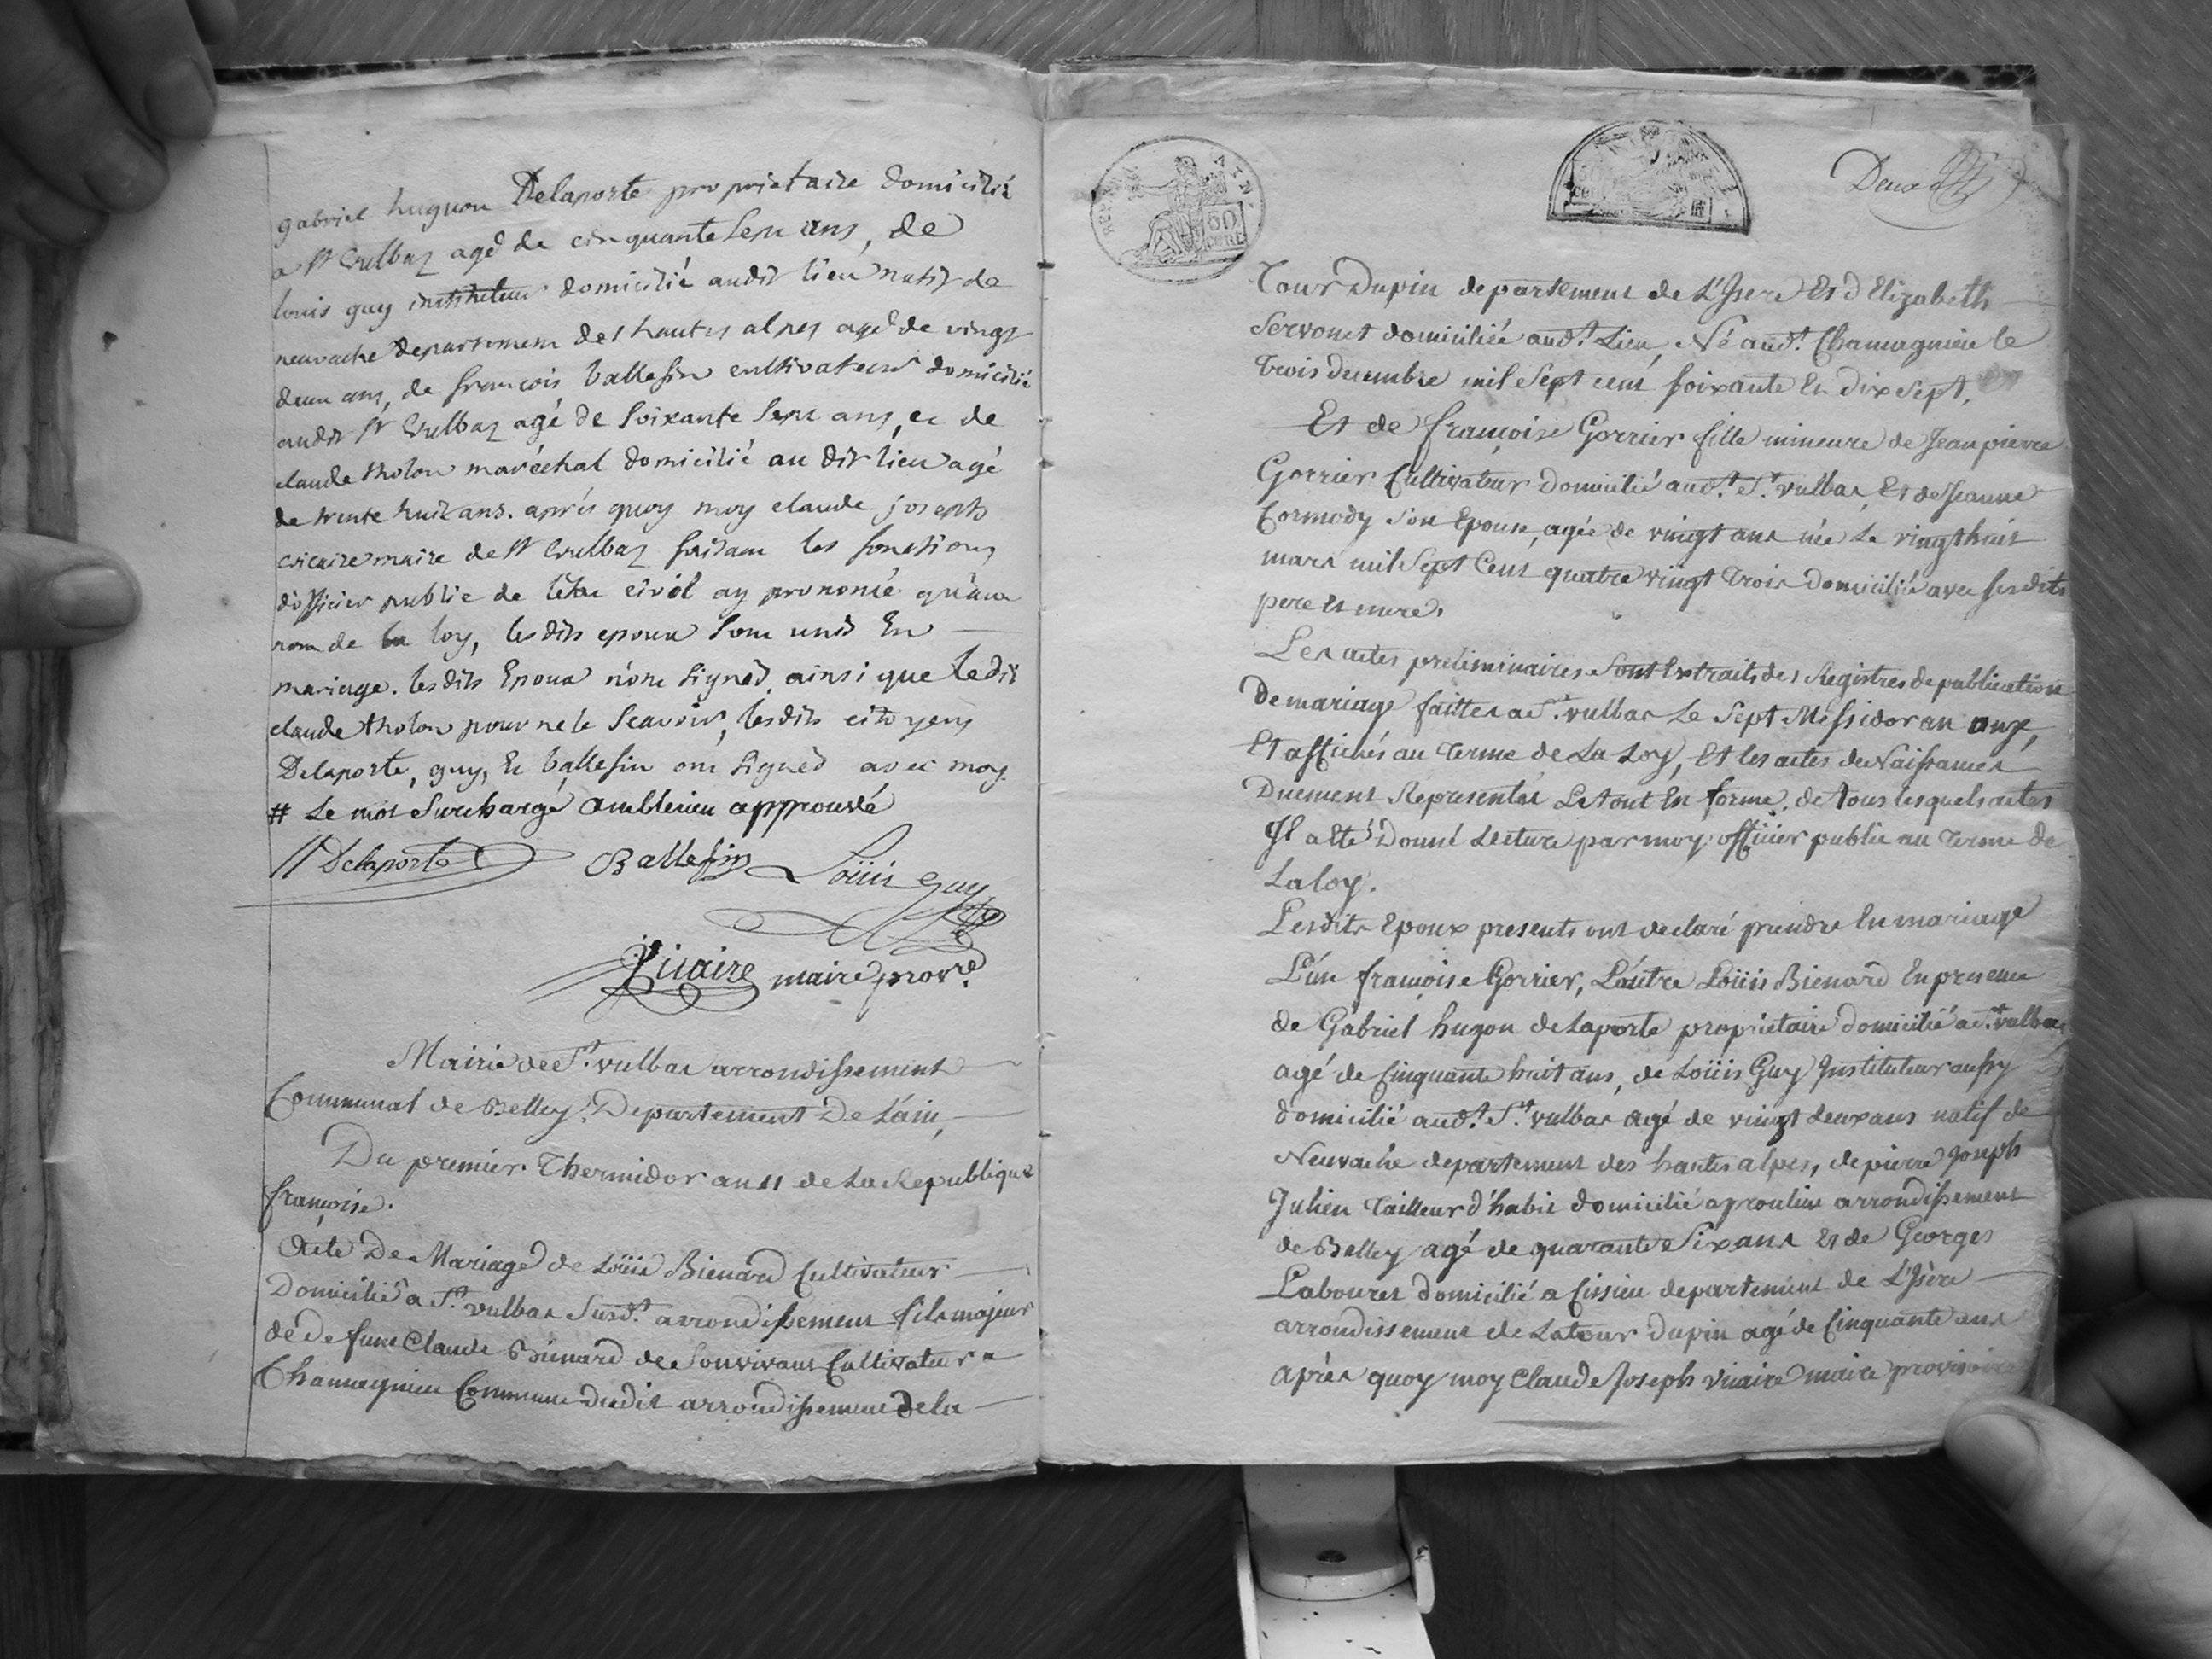 gabriel hugon Delaporte proprietaire domicilié
a St Vulbaz agé de cinquante sept ans, de
louis guy instituteur domicilié audit lieu natif de
neuvache departement des hautes alpes agé de vingt
deux ans, de françois ballefin cultivateur domicilié
audit St Vulbaz agé de soixante sept ans, et de
claude tholon maréchal domicilié au dit lieu agé
de trente huit ans. aprés quoy moy claude joseph
vicaire maire de St Vulbaz faisant les fonctions
d'officier public de l'état civil ay prononcé qu'au
nom de la loy, lesdits epoux sont unis En
mariage. lesdits Epoux n'ont signés ainsi que ledit
claude tholon pour ne le scavoir, lesdits citoyens
Delaporte, guy, et ballefin ont signés avec moy.
# Le mot surchargé amblerieu approuvé
hDelaporte Ballefin Loüis Guy
Vicaire maire provre.
Mairie de St. vulbas arrondissement
Communal de Belley. Departement De L'ain,
Du premier Thermidor an 11 de La Republique
françoise.
Acte De Mariage de Loüis Bienard Cultivateur
Domicilié a St. vulbas Susdt. arrondissement fils majeur
de defunt Claude Bienard de Son vivant Cultivateur a
Chamagnieu Commune dudit arrondissement de la
AIN
50
CENT.
Deux
Tour Dupin departement de L'Isere Et d'Elizabeth
Servonet domiciliée audt. Lieu, Né audt. Chamagnieu le
trois decembre mil Sept cent soixante En dix Sept.
Et de françoise Gorrier fille mineure de Jean pierre
Gorrier Cultivateur Domicilié audt. St. vulbas, Et de Jeanne
Cormody Son Epouse, agée de vingt ans née Le vingt huit
mars mil Sept Cent quatre vingt Trois Domiciliée avec sesdits
pere Et mere.
Les actes preliminaires Sont Extraits des Registres de publication
De mariage faittes a St. vulbas Le Sept Messidor an onze,
Et affichés au Terme de La Loy, Et les actes de Naissances
Duement Representés Le tout En forme. de tous lesquels actes
Il a Eté Donné Lecture par moy officier public au terme de
La loy.
Lesdits Epoux presents ont declaré prendre En mariage
L'un françoise Gorrier, L'autre Loüis Bienard En presence
de Gabriel hugon delaporte proprietaire domicilié a St. vulbas
agé de Cinquante huit ans, de Loüis Guy Instituteur aussy
domicilié audt. St. vulbas agé de vingt deux ans natif de
Neuvache departement des hautes alpes, de pierre Joseph
Julien Tailleur d'habit domicilié a proulieu arrondissement
de Belley agé de quarante Six ans Et de Georges
Labouret domicilié a Cissieu departement de L'Isère
arrondissement de La tour Dupin agé de Cinquante ans
Aprés quoy moy Claude Joseph Vicaire maire provisoire